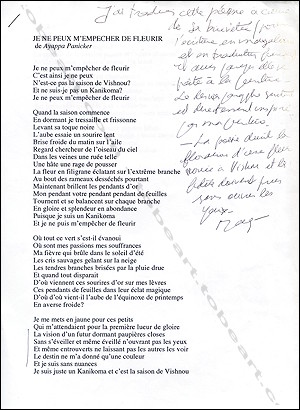 JE NE PEUX M'EMPECHER DE FLEURIR
de Ayappa Panicker
Je ne peux m'empêcher de fleurir
C'est ainsi je ne peux
N'est-ce pas la saison de Vishnou?
Et ne suis-je pas un Kanikoma?
Je ne peux m'empêcher de fleurir
Quand la saison commence
En dormant je tressaille et frissonne
Levant sa toque noire
L'aube essaie un sourire lent
Brise froide du matin sur l'aile
Regard chercheur de l'oiseau du ciel
Dans les veines une ruée telle
Une hâte une rage de pousser
La fleur en filigrane éclatant sur l'extrême branche
Au bout des rameaux desséchés pourtant
Maintenant brillent les pendants d'or
Mon pendant votre pendant pendant de feuilles
Tournent et se balancent sur chaque branche
En gloire et splendeur en abondance
Puisque je suis un Kanikoma
Et je ne puis m'empêcher de fleurir
Où tout ce vert s'est-il évanoui
Où sont mes passions mes souffrances
Ma fièvre qui brûle dans le soleil d'été
Les cris sauvages gelant sur la neige
Les tendres branches brisées par la pluie drue
Et quand tout disparait
D'où viennent ces sourires d'or sur mes lèvres
Ces pendants de feuilles dans leur éclat magique
D'où d'où vient-il l'aube de l'équinoxe de printemps
En averse froide?
Je me mets en jaune pour ces petits
Qui m'attendaient pour la première lueur de gloire
La vision d'un futur dormant paupières closes
Sans s'éveiller et même éveillé n'ouvrant pas les yeux
Et même entrouverts ne laissant pas les autres les voir
Le destin ne m'a donné qu'une couleur
Et je suis sans nuances
Je suis juste un Kanikoma et c'est la saison de Vishnou
J'ai traduit cette poème
de sa
l'auteur
et en
La
est directement
par ma
La poésie
d'une fleur
à Vishnu et
sans ouvrir les
yeux